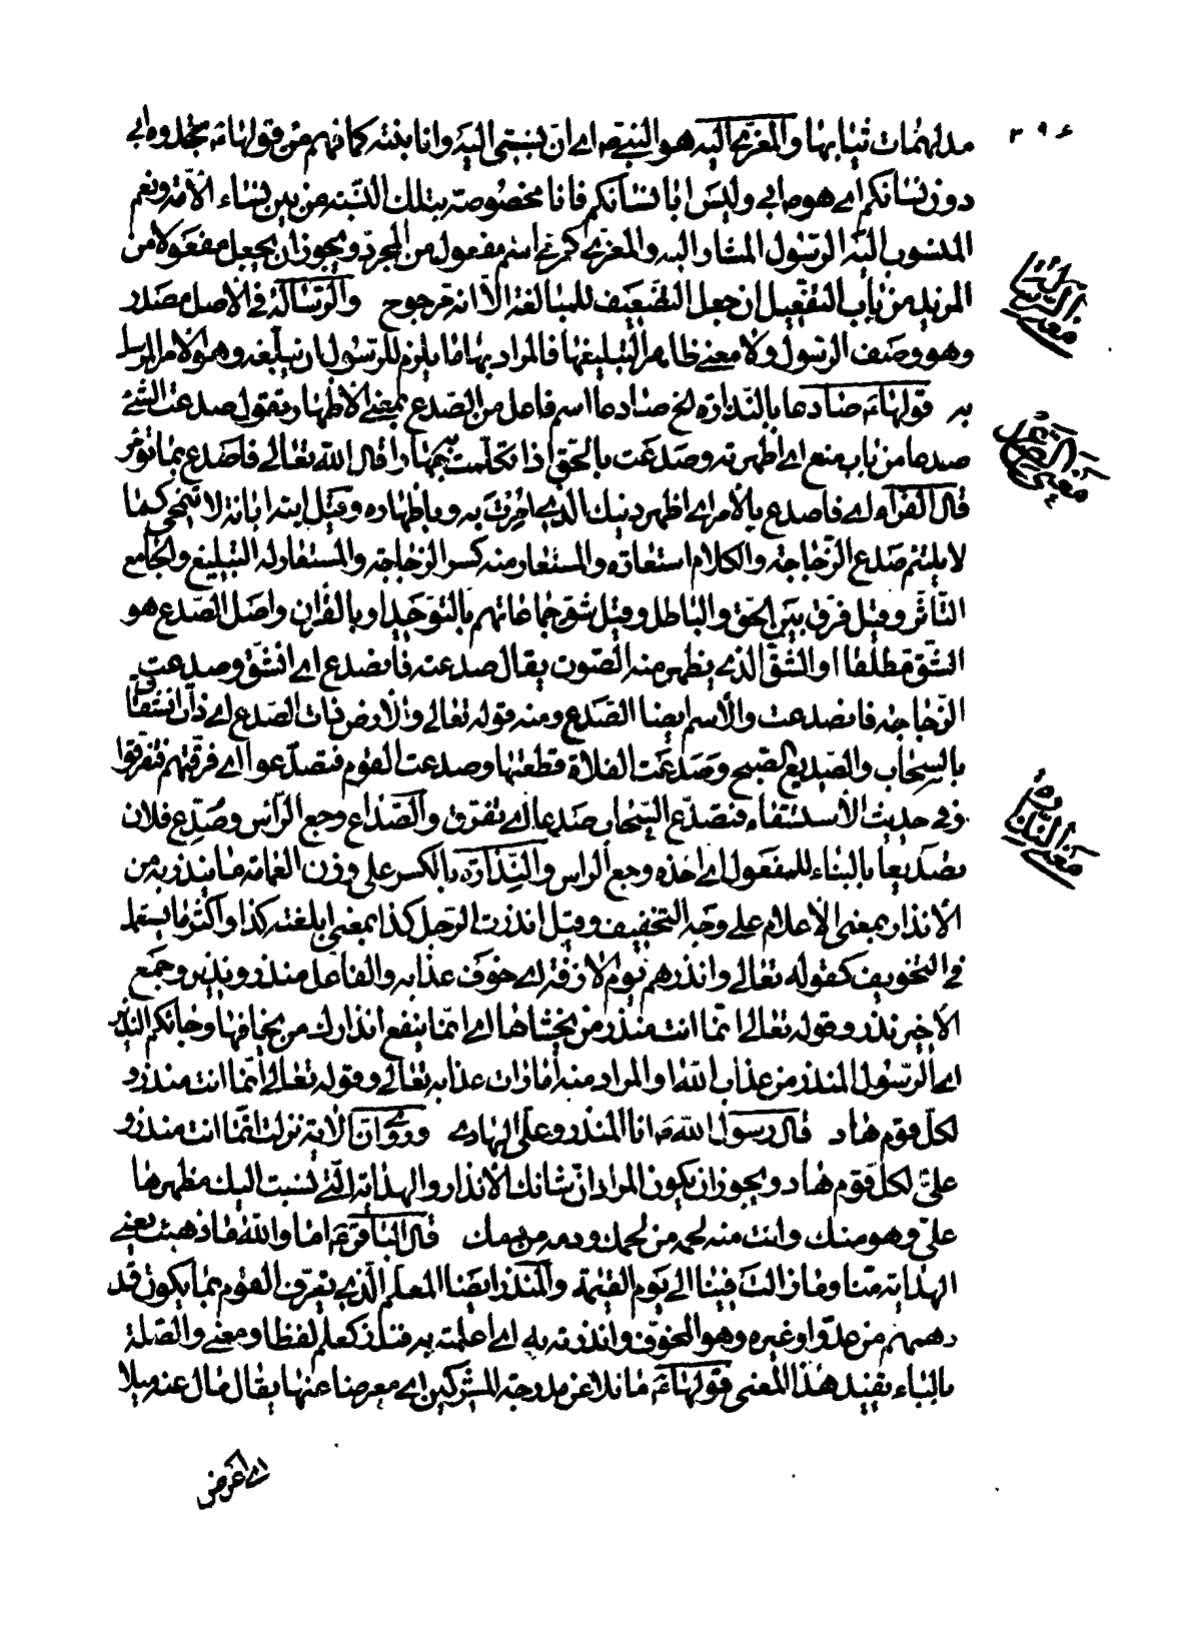 ٣٩٤
مدلهمات ثيابها والمعزى اليه هو النبي ص اى ان ينتمى اليه وانا بنته كما فهم من قولها ع تجدوه ابى
دون نسائكم اى هو ابى وليس ابا نسائكم فانا مخصوصة بتلك النسبة من بين نساء الامة ونعم
المنسوب اليه الرسول المشار اليه والمعزى كمرمى اسم مفعول من المجرد ويجوز ان يجعل مفعولا من
المزيد من باب التفعيل ان جعل التضعيف للمبالغة الا انه مرجوح والرسالة فى الاصل مصدر
معنى الرسالة
وهو وصف الرسول ولا معنى ظاهرا لتبليغها فالمراد بها ما يلزم للرسول ان يبلغه وهو الامر المرسل
به قولها ع صادعا بالنذارة الخ صادعا اسم فاعل من الصدع بمعنى الاظهار تقول صدعت الشئ
معنى الصدع
صدعا من باب منع اى اظهرته وصدعت بالحق اذا تكلمت به جهارا قال الله تعالى فاصدع بما تؤمر
قال الفراء اى فاصدع بالامر اى اظهر دينك الذى امرت به وباظهاره وقيل ابنه ابانة لا تنمحى كما
لا يلتئم صدع الزجاجة والكلام استعارة والمستعار منه كسر الزجاجة والمستعار له التبليغ والجامع
التأثر وقيل فرق بين الحق والباطل وقيل شق جماعاتهم بالتوحيد او بالقران واصل الصدع هو
الشق مطلقا او الشق الذى يظهر منه الصوت يقال صدعته فانصدع اى انشق وصدعت
الزجاجة فانصدعت والاسم ايضا الصدع ومنه قوله تعالى والارض ذات الصدع اى ذات انشقاق
بالسحاب والصديع الصبح وصدعت الفلاة قطعتها وصدعت القوم فتصدعوا اى فرقتهم فتفرقوا
وفى حديث الاستسقاء فتصدع السحاب صدعا اى تفرق والصداع وجع الرأس وصدع فلان
معنى النذارة
تصديعا بالبناء للمفعول اى اخذه وجع الراس والنذارة بالكسر على وزن العمامة ما ينذر به من
الانذار بمعنى الاعلام على وجه التخفيف وقيل انذرت الرجل كذا بمعنى ابلغته كذا واكثر ما يستعمل
فى التخويف كقوله تعالى وانذرهم يوم الازفة اى خوف عذابه والفاعل منذر ونذير وجمع
الاخير نذر وقوله تعالى انما انت منذر من يخشاها اى انما ينفع انذارك من يخافها وجائكم النذير
اى الرسول المنذر من عذاب الله او المراد منه امارات عذابه تعالى وقوله تعالى انما انت منذر و
لكل قوم هاد قال رسول الله ص انا المنذر وعلى الهادى وروى ان الاية نزلت انما انت منذر و
على لكل قوم هاد ويجوز ان يكون المراد ان شانك الانذار والهداية التى نسبت اليك مظهرها
على وهو منك وانت منه لحمه من لحمك ودمه من دمك قال الباقر ع اما والله ما ذهبت يعنى
الهداية منا وما زالت فينا الى يوم القيمة والمنذر ايضا المعلم الذى يعرف القوم بما يكون قد
دهمهم من عدو او غيره وهو المخوف وانذرته به اى اعلمته به فنذر كعلم لفظا ومعنى والصلة
بالباء تفيد هذا المعنى قولها ع مائلا عن مدرجة المشركين اى معرضا عنها يقال مال عنه ميلا
اى اعرض